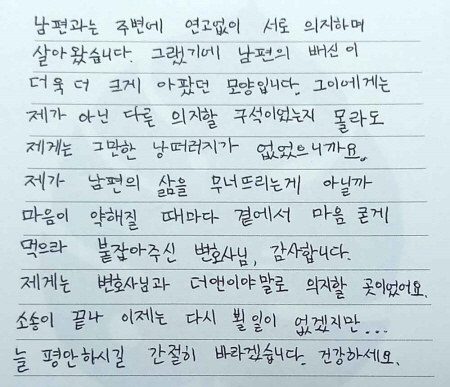 남편과는 주변에 연고없이 서로 의지하며
살아왔습니다. 그랬기에 남편의 배신이
더욱 더 크게 아팠던 모양입니다. 그이에게는
제가 아닌 다른 의지할 구석이었는지 몰라도
제게는 그만한 낭떠러지가 없었으니까요.
제가 남편의 삶을 무너뜨리는게 아닐까
마음이 약해질 때마다 곁에서 마음 굳게
먹으라 붙잡아주신 변호사님, 감사합니다.
제게는 변호사님과 더앤이야말로 의지할 곳이었어요.
소송이 끝나 이제는 다시 뵐 일이 없겠지만...
늘 평안하시길 간절히 바라겠습니다. 건강하세요.